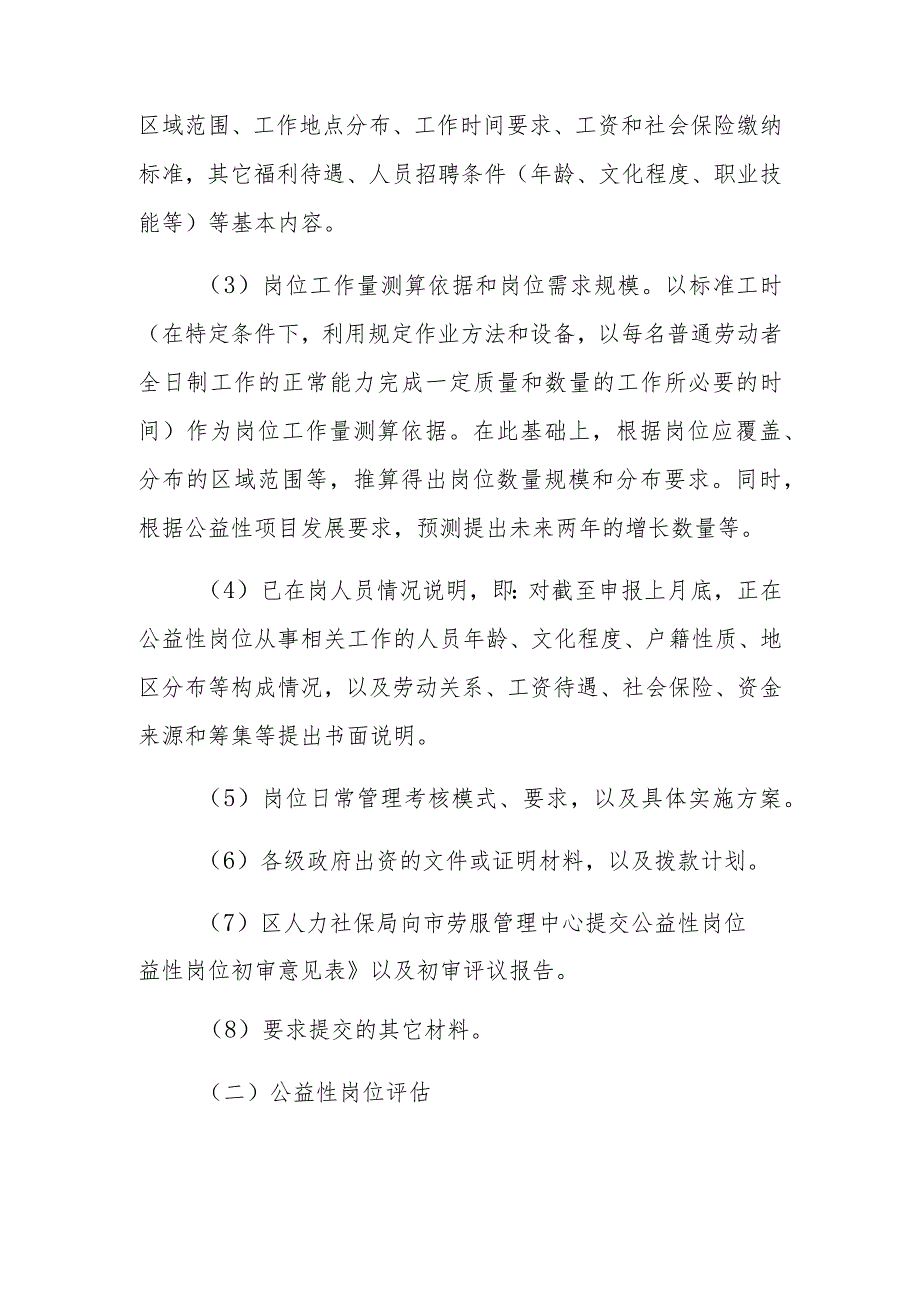 区域范围、工作地点分布、工作时间要求、工资和社会保险缴纳
标准，其它福利待遇、人员招聘条件（年龄、文化程度、职业技
能等）等基本内容。
（3）岗位工作量测算依据和岗位需求规模。以标准工时
（在特定条件下，利用规定作业方法和设备，以每名普通劳动者
全日制工作的正常能力完成一定质量和数量的工作所必要的时
间）作为岗位工作量测算依据。在此基础上，根据岗位应覆盖、
分布的区域范围等，推算得出岗位数量规模和分布要求。同时，
根据公益性项目发展要求，预测提出未来两年的增长数量等。
（4）已在岗人员情况说明，即：对截至申报上月底，正在
公益性岗位从事相关工作的人员年龄、文化程度、户籍性质、地
区分布等构成情况，以及劳动关系、工资待遇、社会保险、资金
来源和筹集等提出书面说明。
（5）岗位日常管理考核模式、要求，以及具体实施方案。
（6）各级政府出资的文件或证明材料，以及拨款计划。
（7）区人力社保局向市劳服管理中心提交公益性岗位
益性岗位初审意见表》以及初审评议报告。
（8）要求提交的其它材料。
（二）公益性岗位评估